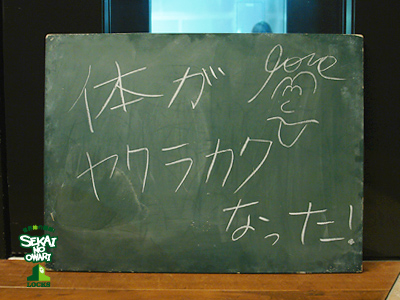 体が
love
ヤワラカク
なった!
SEKAI
NO
OWARI
LOCKS!